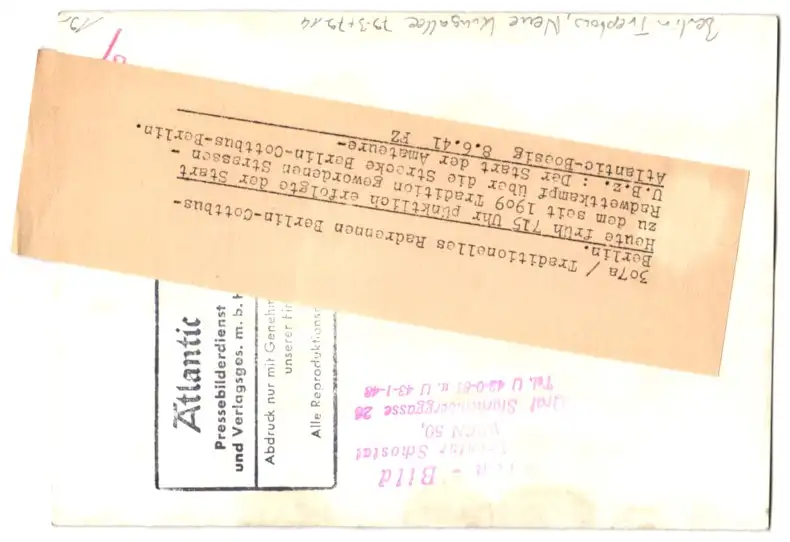 Berlin Treptow, Neue Krugallee 79-3+79.14
307a / Traditionelles Radrennen Berlin-Cottbus-
Berlin.
Heute früh 715 Uhr pünktlich erfolgte der Start
zu dem seit 1909 Tradition gewordenen Strassen -
Radwettkampf über die Strecke Berlin-Cottbus-Berlin.
U.B.z. : Der Start der Amateure-
Atlantic-Boesig 8.6.41 FZ
Atlantic
Pressebilderdienst
und Verlagsges. m. b. H
Abdruck nur mit Genehm
unserer Fi
Alle Reproduktions
- Bild
Schostal
WIEN 50,
Graf Starhemberggasse 26
Tel. U 42-0-61 u. U 43-1-48